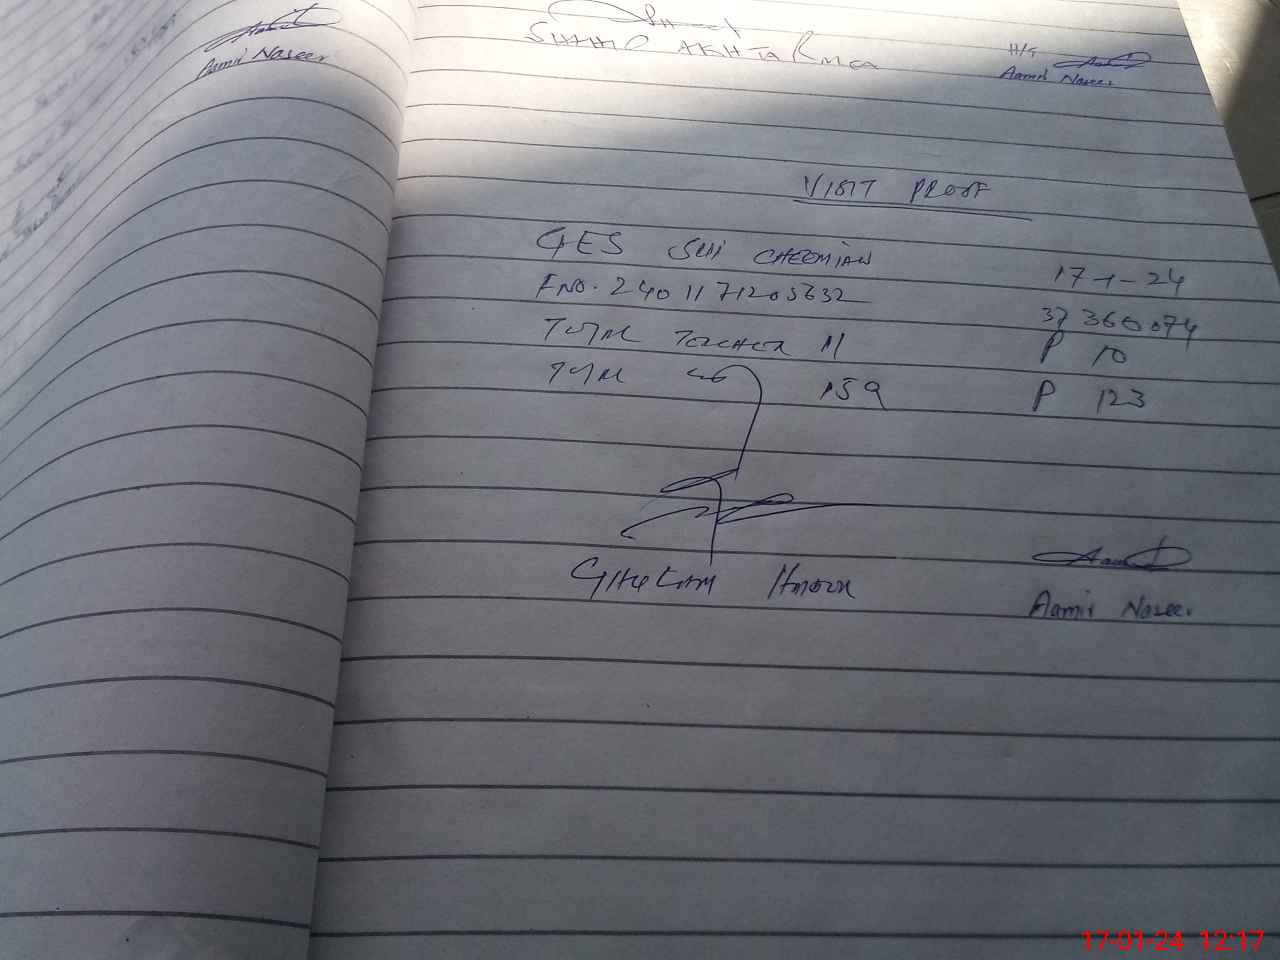 Aamir Naseer
SHAHID AKHTAR MEA
H/T
Aamir Naseer
VISIT PROOF
GES SUI CHEEMIAN 17-1-24
F NO. 2401171203632 37360074
TOTAL TEACHER 11 P 10
TOTAL 159 P 123
GHULAM
Aamir Naseer
17-01-24 12:17